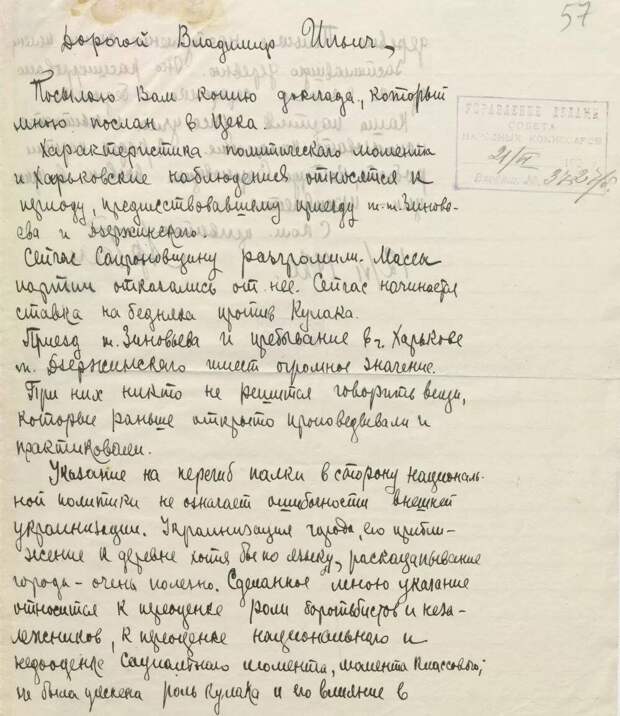 57
Дорогой Владимир Ильич,
Посылаю Вам копию доклада, который
мною послан в Цека.
УПРАВЛЕНИЕ ДЕЛАМИ
СОВЕТА
НАРОДНЫХ КОМИССАРОВ
21/VI
Характеристика политического момента
и Харьковские наблюдения относятся к
периоду, предшествовавшему приезду т.т. Зиновь-
ева и Дзержинского.
Сейчас Сапроновщину разгромили. Массы
партии отказались от нее. Сейчас начинается
ставка на бедняка против Кулака.
Приезд т. Зиновьева и пребывание в г. Харькове
т. Дзержинского имеет огромное значение.
При них никто не решится говорить вещи,
которые раньше открыто проповедывали и
практиковали.
Указание на перегиб палки в сторону националь-
ной политики не означает ошибочности внешней
украинизации. Украинизация города, его прибли-
жение к деревне хотя бы по языку, раскацапывание
города - очень полезно. Сделанное мною указание
относится к переоценке роли боротьбистов и неза-
лежников, к переоценке национального и
недооценке Социального момента, момента классового;
не была учтена роль Кулака и его влияние в